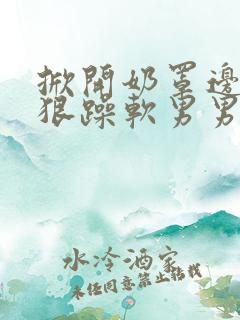 掀開奶罩邊
狠躁軟男男
水冷酒家
未任同意禁止转载